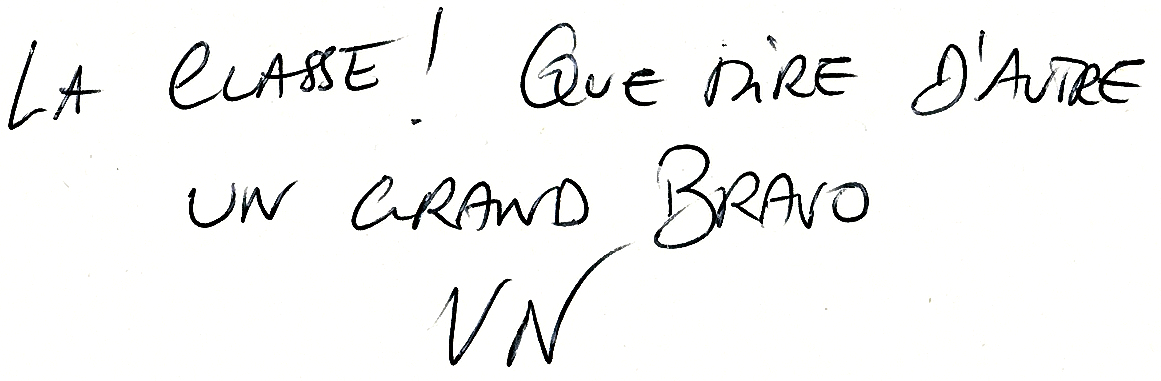 LA CLASSE! QUE DIRE D'AUTRE
UN GRAND BRAVO
VN